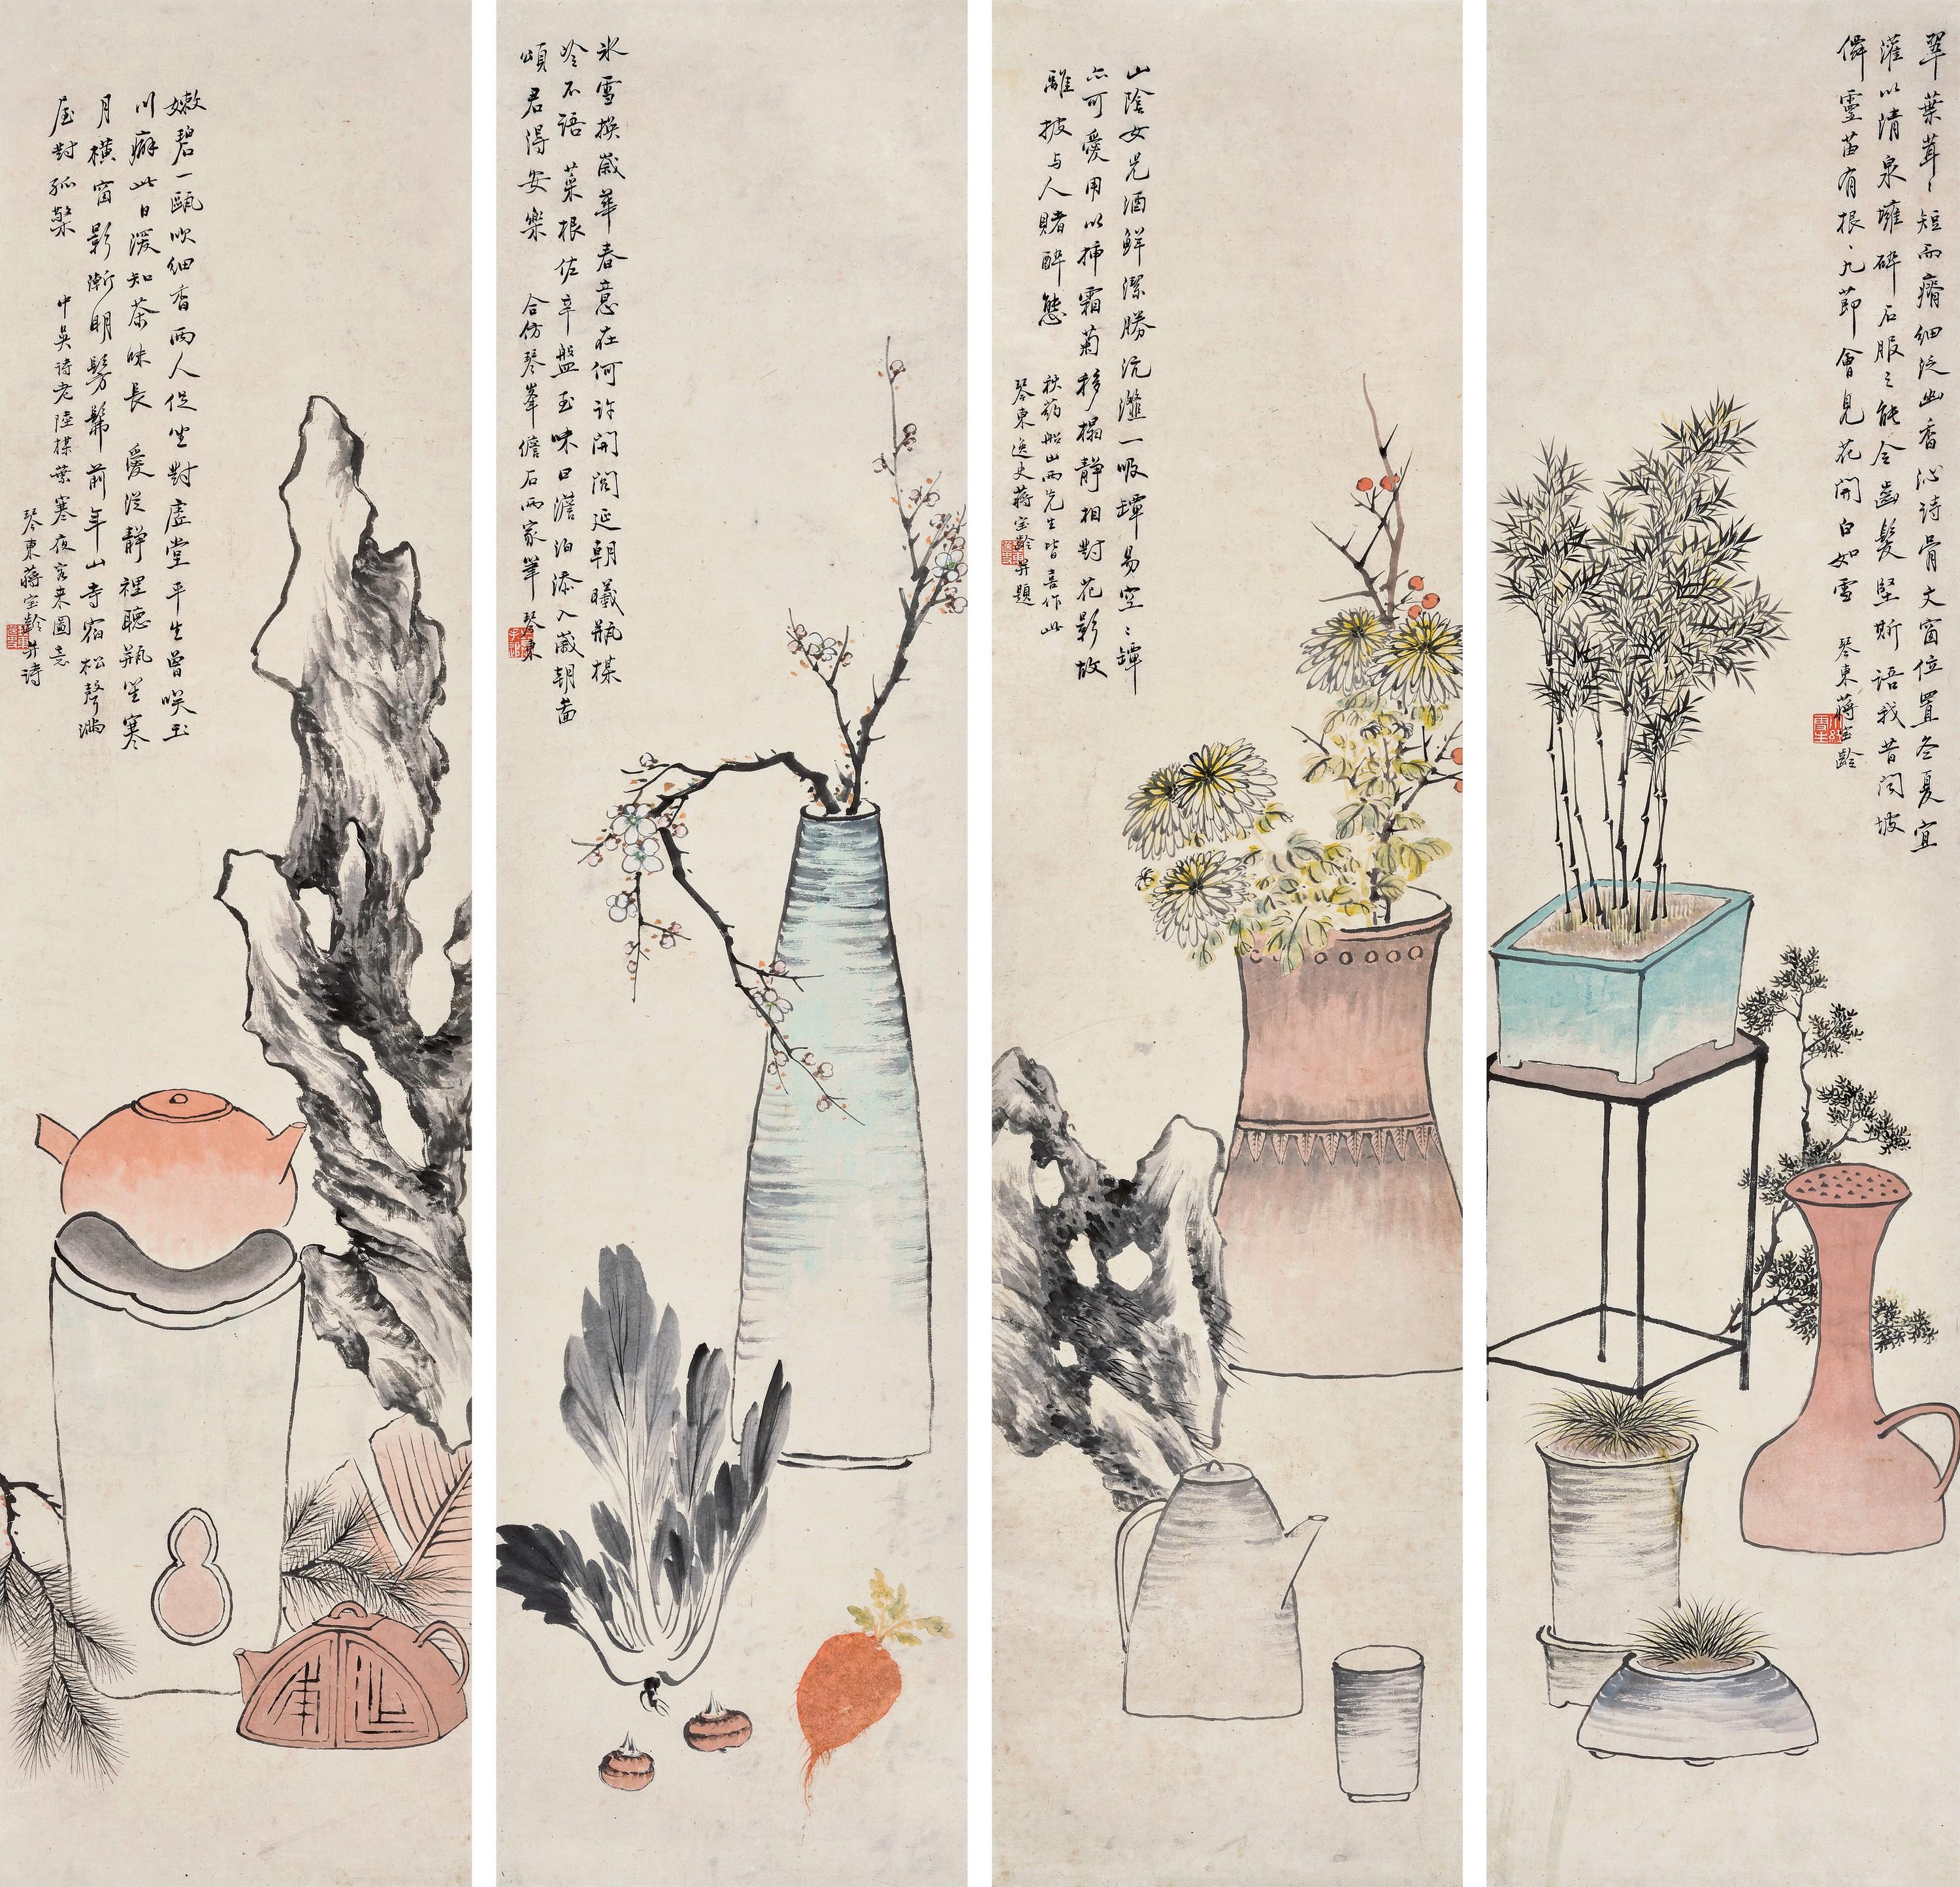 翠葉茸〻短而瘠細泛幽香沁詩骨文窗位置冬夏宜
灌以清泉壅碎石服之能令齒髮堅斯語我昔聞坡
僊靈苗有根〻九節會見花開白如雪
琴東蔣宝齡
山陰女兒酒鮮潔勝沆瀣一吸罈易空〻罈
亦可愛用以插霜菊移榻靜相對花影故
離披与人賭醉態
秋葯船山两先生皆喜作此
琴東逸史蔣宝齡并題
氷雪換歳華春意在何許開閣延朝曦瓶楳
冷不語菜根佐辛盤至味曰澹泊添入歳朝圖
頌君得安樂
合仿琴峯儋石两家筆
琴東
嫩碧一甌吹細香两人促坐對虛堂平生曾咲玉
川癖此日湲知茶味長
愛從靜裡聽瓶笙寒
月橫窗影漸明髣髴前年山寺宿松聲滿
屋對孤檠
中吳诗老陸楳葉寒夜客来圖意
琴東蔣宝齡并诗